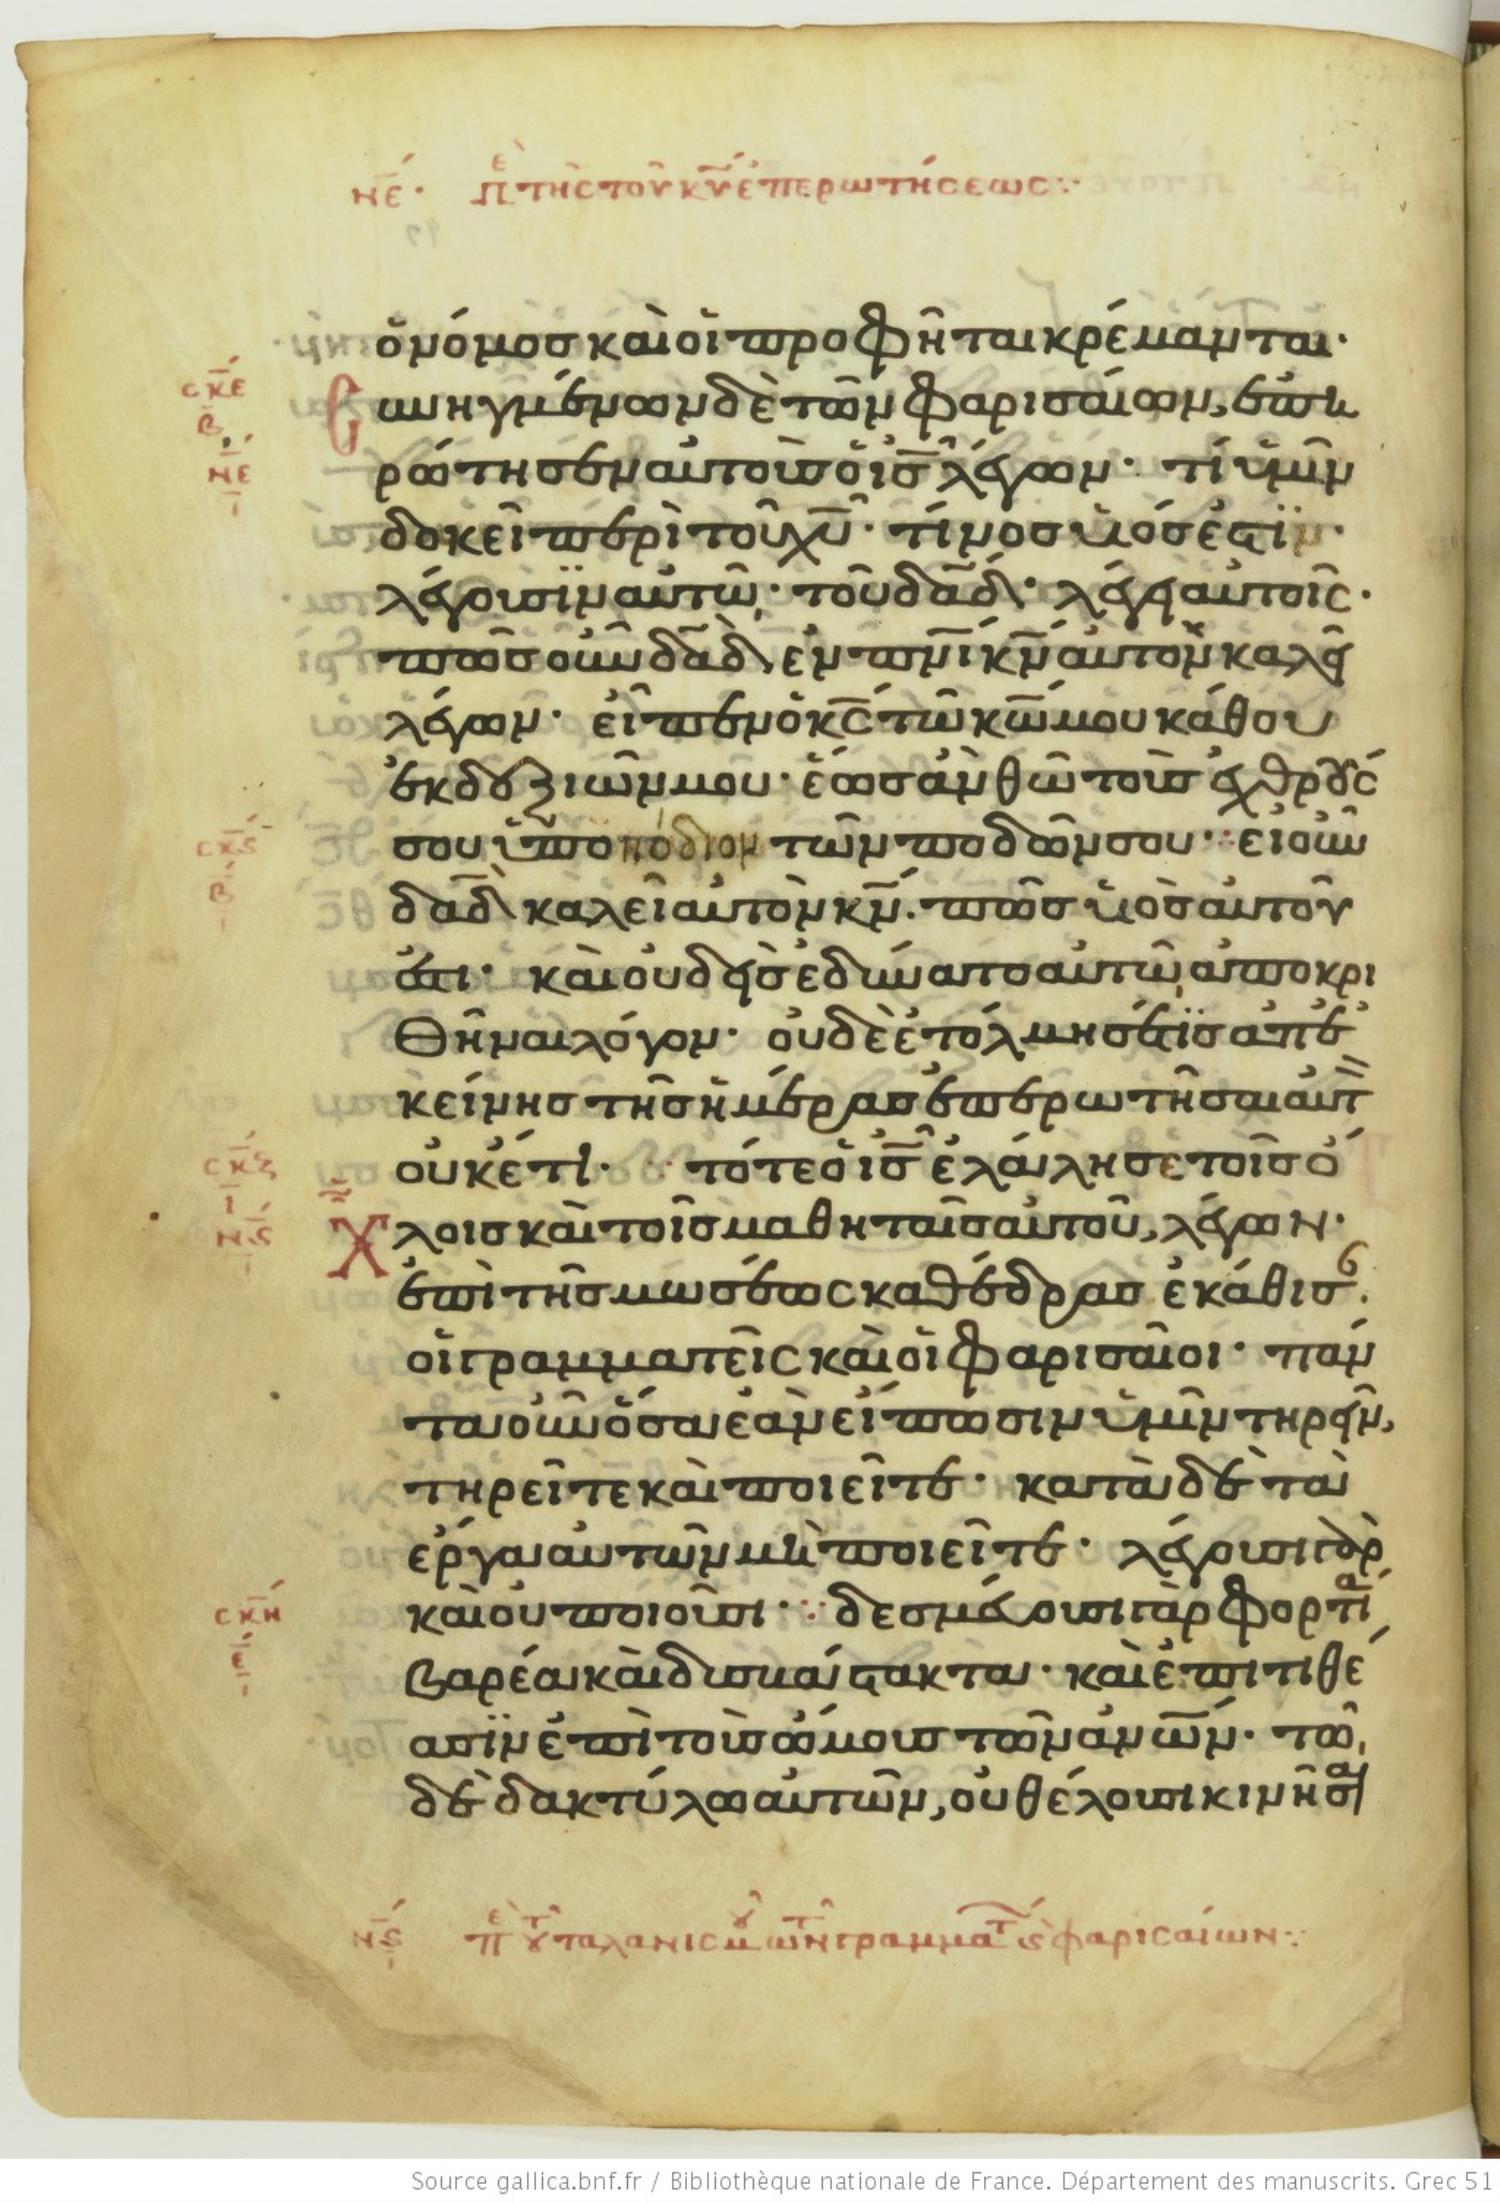 νε· πε τῆς τοῦ κυ ἐπερωτήσεως
ὁ νόμος καὶ οἱ προφῆται κρέμανται·
σκε
β
νε
Συνηγμένων δὲ τῶν φαρισαίων, ἐπη
ρώτησεν αὐτοὺς ὁ ις λέγων· τί ὑμῖν
δοκεῖ περὶ τοῦ χυ· τίνος υἱός ἐστϊν·
λέγουσϊν αὐτῶ· τοῦ δαδ· λέγει αὐτοῖς·
πῶς οὖν δαδ ἐν πνι κν αὐτὸν καλεῖ
λέγων· εἶπεν ὁ κς τῶ κω μου κάθου
ἐκ δεξιῶν μου· ἕως ἂν θῶ τοὺς ἐχθρούς
σκς
β
σου ὑποπόδιον τῶν ποδῶν σου· εἰ οὖν
δαδ καλεῖ αὐτὸν κν· πῶς υἱὸς αὐτοῦ
ἐστι· καὶ οὐδεὶς ἐδύνατο αὐτῶ ἀποκρι
θῆναι λόγον· οὐδὲ ἐτόλμησέ τϊς ἀπ' ἐ
κείνης τῆς ἡμέρας ἐπερωτῆσαι αὐτ
σκζ
ι
νς
οὐκέτι· τότε ὁ ις ἐλάλησε τοῖς ὄ
χλοις καὶ τοῖς μαθηταῖς αὐτοῦ, λέγων·
ἐπὶ τῆς μωσέως καθέδρας ἐκάθισε·
οἱ γραμματεῖς καὶ οἱ φαρισαῖοι· πάν
τα οὖν ὅσα ἐὰν εἴπωσιν ὑμῖν τηρεῖν,
τηρεῖτε καὶ ποιεῖτε· κατὰ δὲ τὰ
ἔργα αὐτῶν μὴ ποιεῖτε· λέγουσι γὰρ
σκη
ε
καὶ οὐ ποιοῦσι· δεσμεύουσι γὰρ φορτία
βαρέα καὶ δυσβάστακτα· καὶ ἐπιτιθέ
ασϊν ἐπὶ τοὺς ὤμους τῶν ἀνων· τῶ
δὲ δακτύλω αὐτῶν, οὐ θέλουσι κινῆσαι
νς πε τοῦ ταλανισμοῦ τῶν γραμματ καὶ φαρισαίων
Source gallica.bnf.fr / Bibliothèque nationale de France. Département des manuscrits. Grec 51